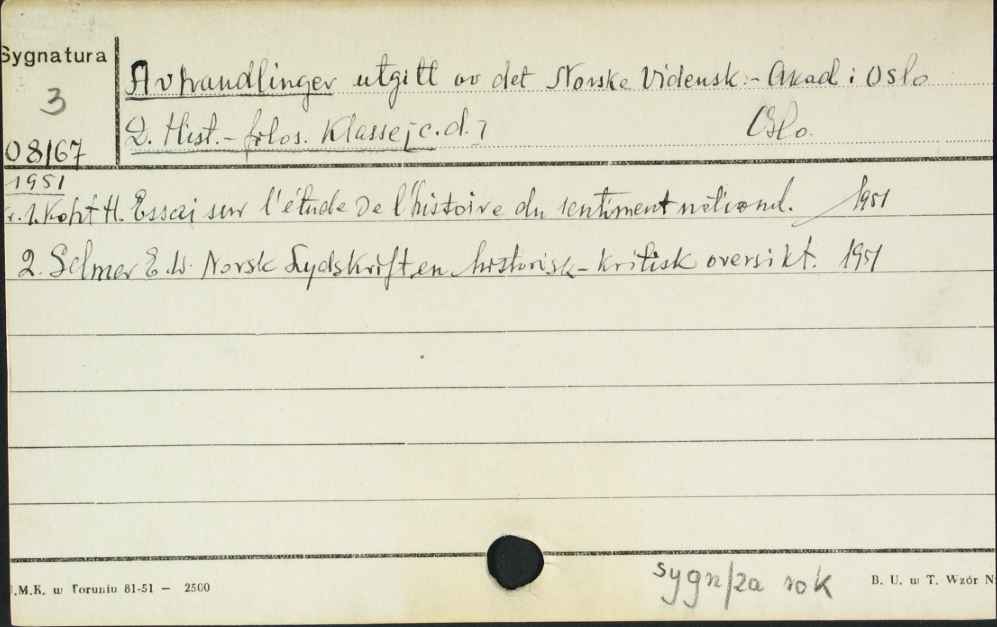 Sygnatura
3
08167
Avhandlinger utgitt av det Norske Vidensk.- Akad i Oslo
2. Hist.- filos. Klasse [c.d.] Oslo.
1951
1. Koht H. Essai sur l'étude de l'histoire du sentiment national. 1951
2. Selmer E. W. Norsk Lydskrift, en historisk-kritisk oversikt. 1951
.M.K. w Toruniu 81-51 — 2500
sygn/za rok
B. U. w T. Wzór N